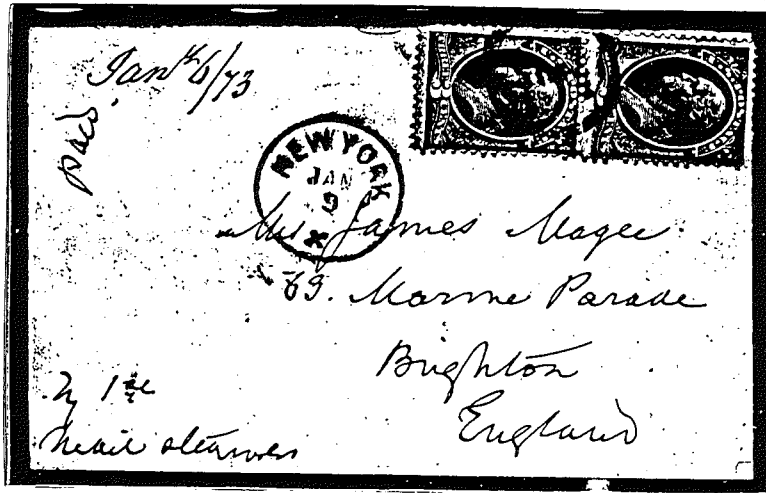 Jan 6/73
paid
NEW YORK
JAN
9
Mrs James Magee
69. Marine Parade
Brighton
England
by 1st
mail steamer